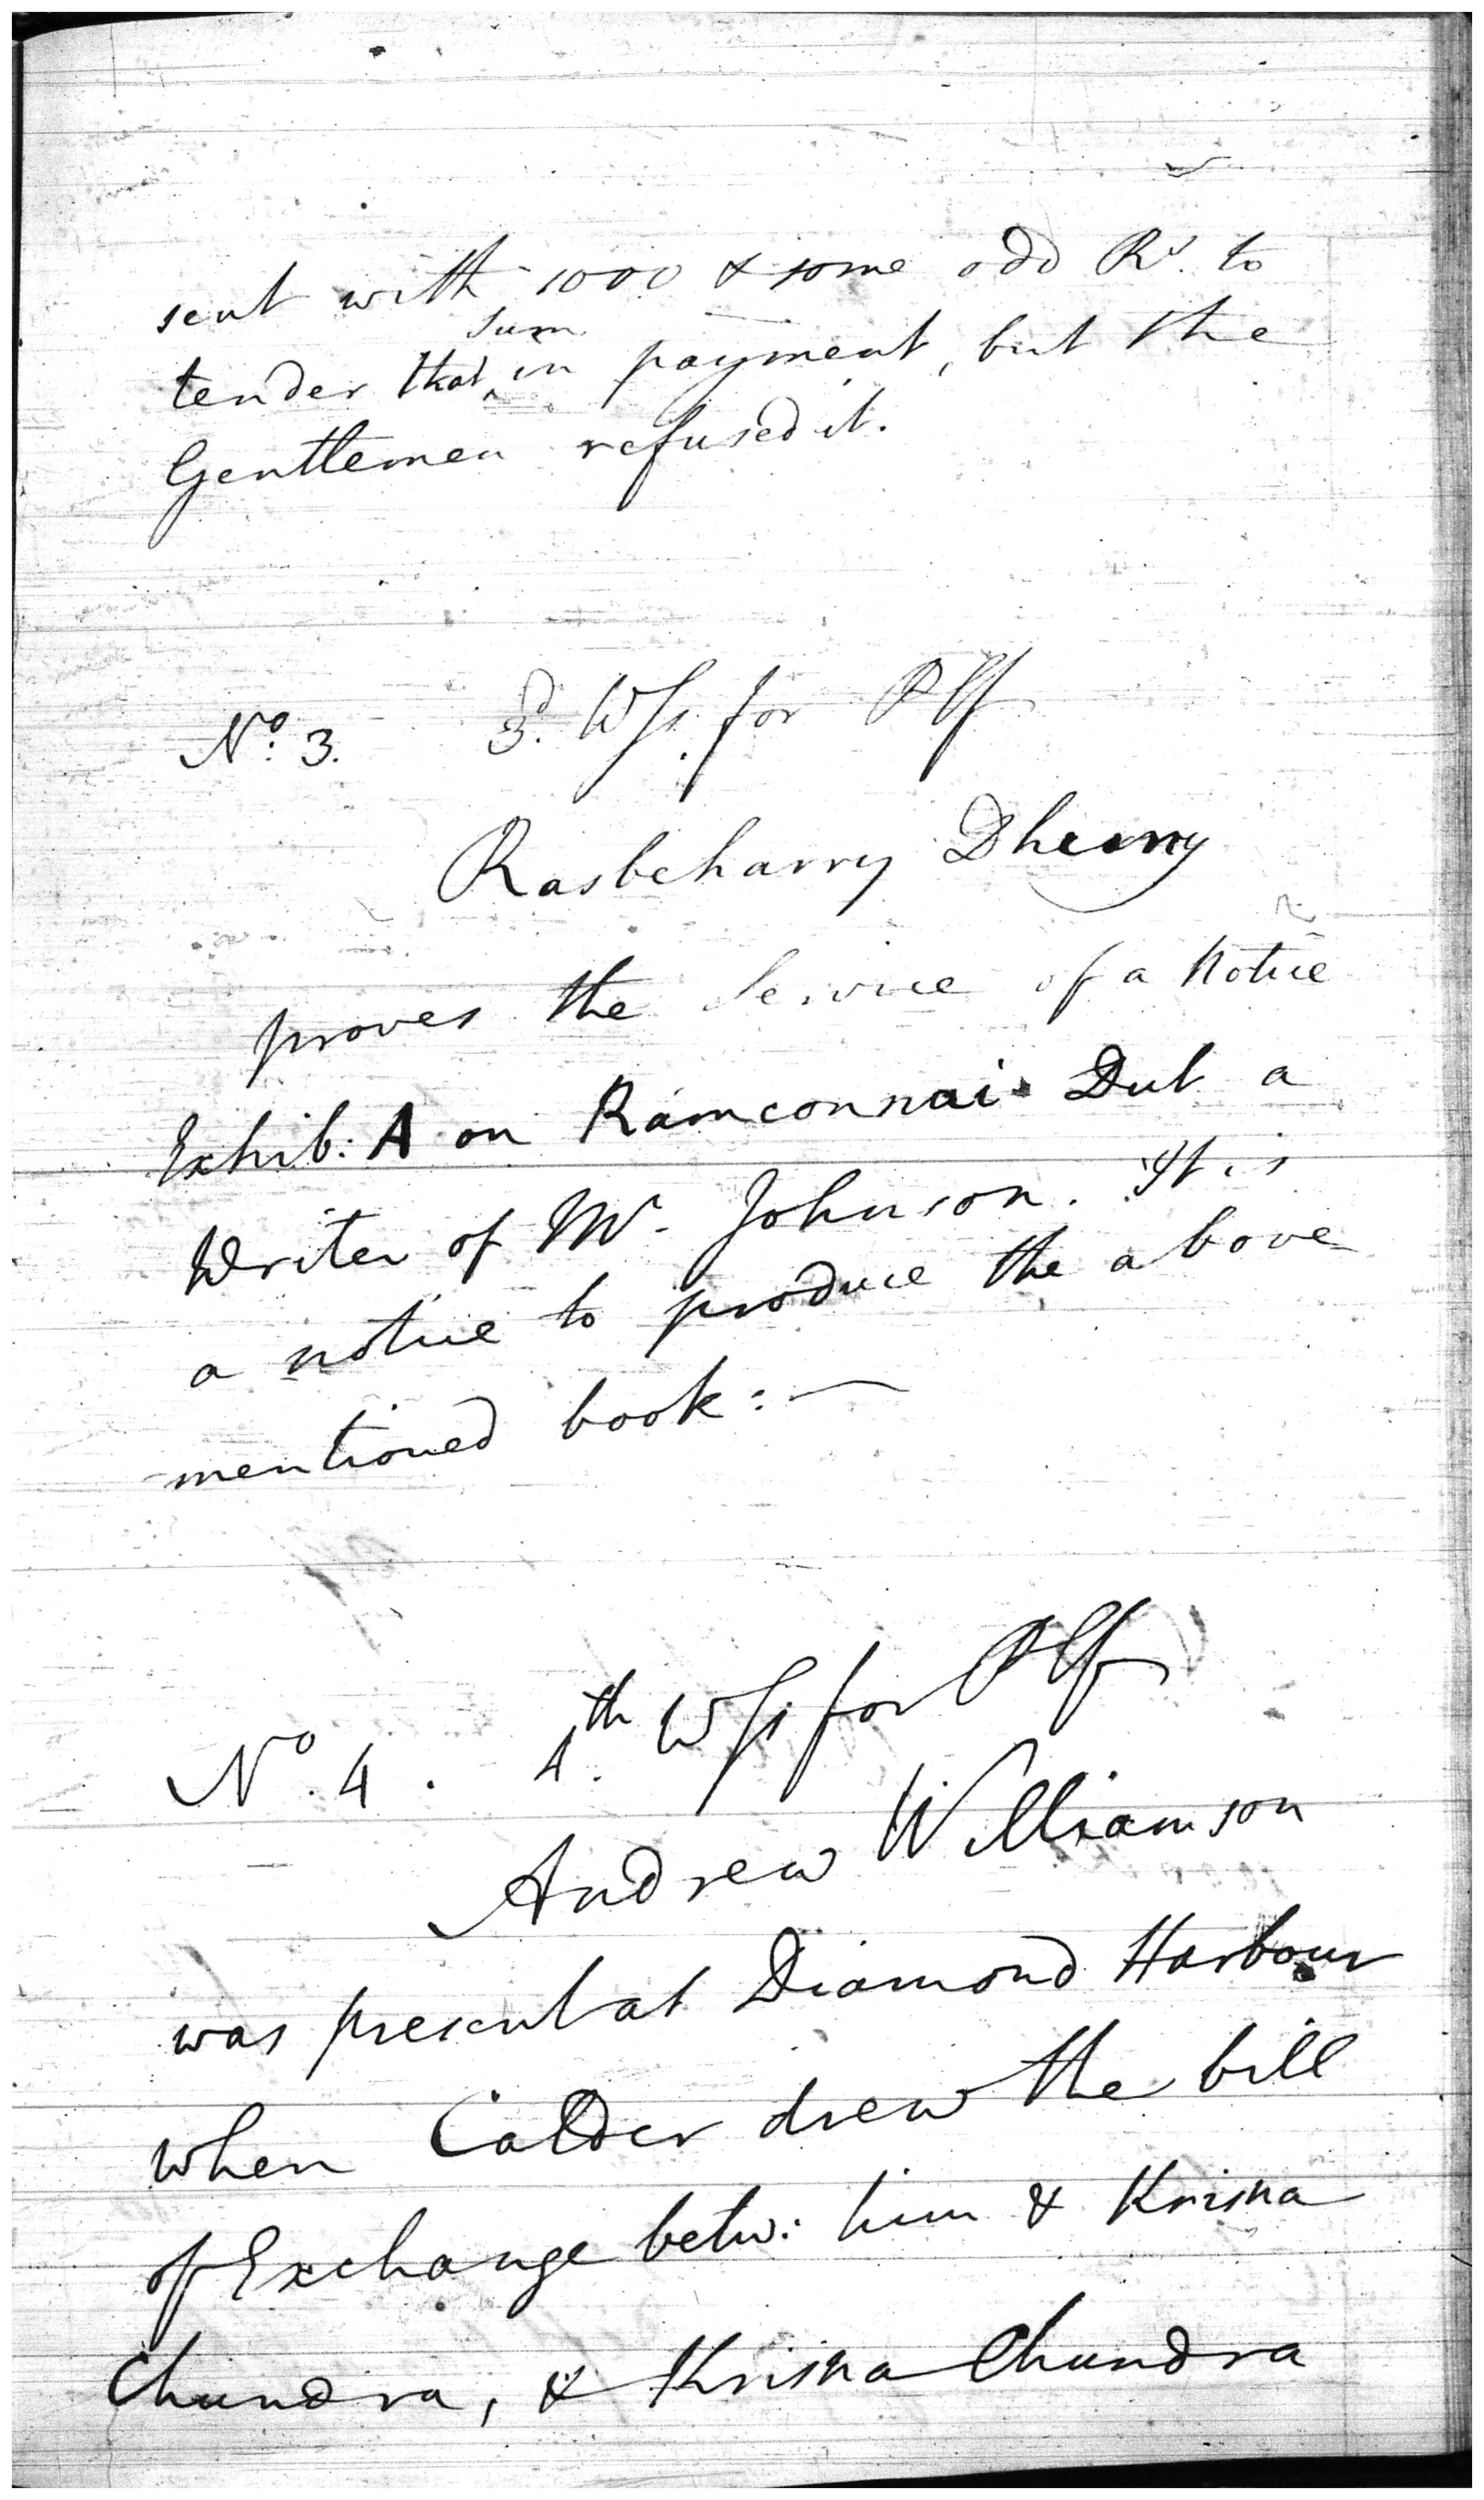 sent with 1000 & some odd Rs. to
tender that sum in payment, but the
Gentlemen refused it.
No. 3. 3d. Wss. for Plf
Rasbeharry
proves the Service of a Notice
Exhib: A on Ramconnai Dut a
Writer of Mr. Johnson. It is
a notice to produce the above
mentioned book: —
No. 4. 4th. Wss for Plf
Andrew Williamson
was present at Diamond Harbour
when Calder drew the bill
of Exchange betw: him & Krisna
Chundra, & Krisna Chundra